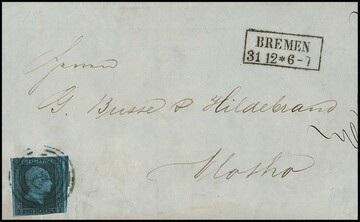 BREMEN
31 12*6-7
Herrn
G. Busse & Hildebrand